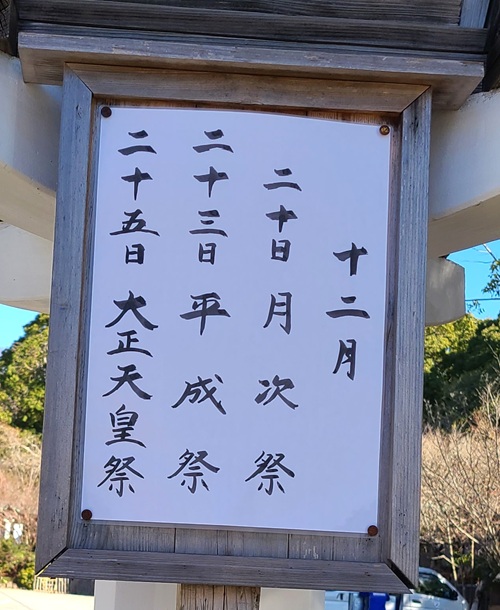 十二月
二十日 月次祭
二十三日 平成祭
二十五日 大正天皇祭